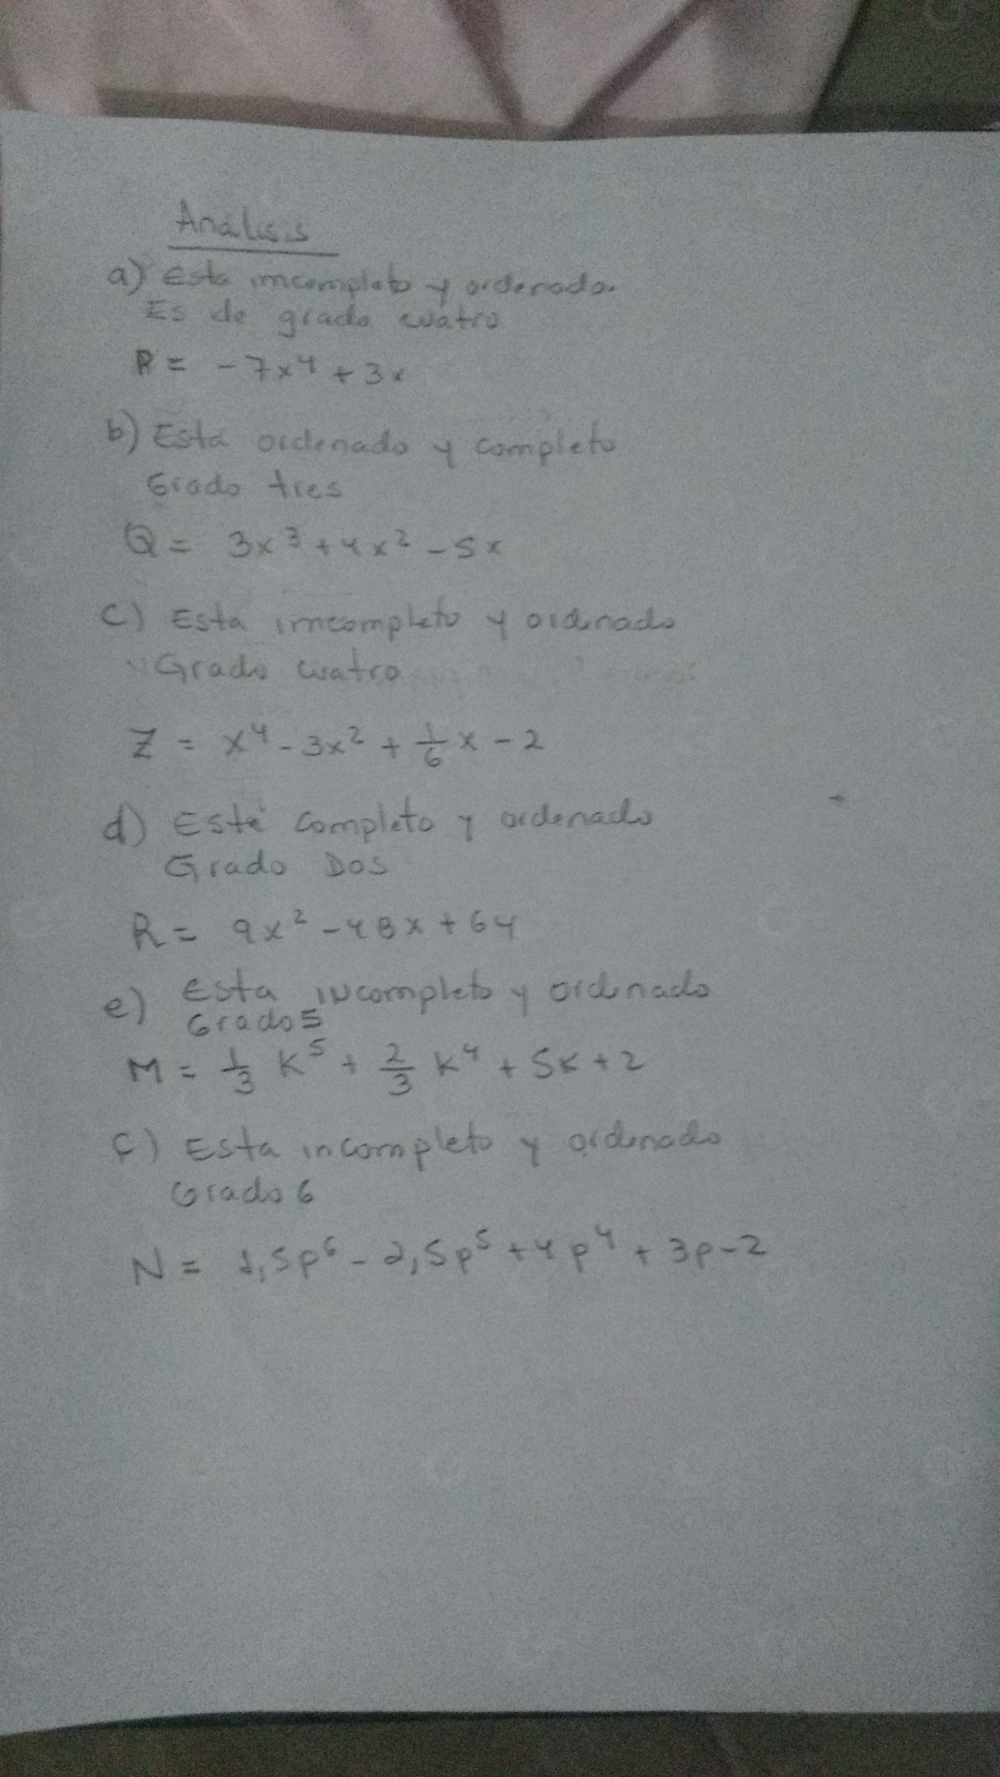 Análisis
a) Esta imcompleto y ordenado.
Es de grado cuatro
P = -7x⁴ + 3x
b) Está ordenado y completo
Grado tres
Q = 3x³ + 4x² - 5x
c) Esta imcompleto y ordenado
Grado cuatro
Z = x⁴ - 3x² + 1/6 x - 2
d) Esté completo y ordenado
Grado Dos
R = 9x² - 48x + 64
e) Esta incompleto y ordenado
Grado 5
M = 1/3 K⁵ + 2/3 K⁴ + 5K + 2
f) Esta incompleto y ordenado
Grado 6
N = 1,5p⁶ - 2,5p⁵ + 4p⁴ + 3p - 2